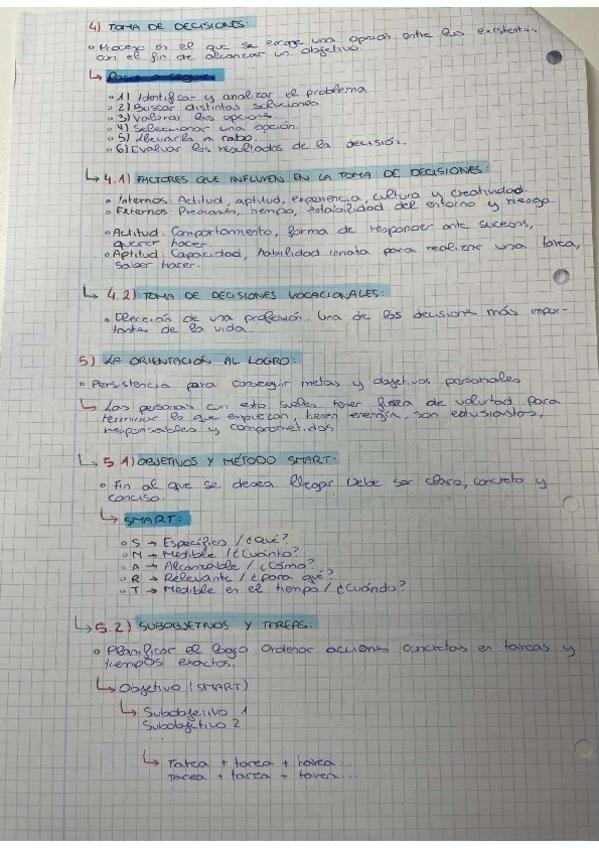 4) TOMA DE DECISIONES:
◦ Proceso en el que se escoge una opción entre las existentes,
con el fin de alcanzar un objetivo.
↳ Pasos a seguir:
◦ 1) Identificar y analizar el problema
◦ 2) Buscar distintas soluciones
◦ 3) Valorar las opciones.
◦ 4) Seleccionar una opción.
◦ 5) Llevarla a cabo.
◦ 6) Evaluar los resultados de la decisión.
↳ 4.1) FACTORES QUE INFLUYEN EN LA TOMA DE DECISIONES:
◦ Internos: Actitud, aptitud, experiencia, cultura y creatividad.
◦ Externos: Presiones, tiempo, estabilidad del entorno y riesgo
◦ Actitud: Comportamiento, forma de responder ante sucesos,
querer hacer.
◦ Aptitud: Capacidad, habilidad innata para realizar una tarea,
saber hacer.
↳ 4.2) TOMA DE DECISIONES VOCACIONALES:
◦ Elección de una profesión. Una de las decisiones más impor-
tantes de la vida.
5) LA ORIENTACIÓN AL LOGRO:
◦ Persistencia para conseguir metas y objetivos personales
↳ Las personas con esto suelen tener fuerza de voluntad para
terminar lo que empiezan, tienen energía, son entusiastas,
responsables y comprometidos.
↳ 5.1) OBJETIVOS Y MÉTODO SMART:
◦ Fin al que se desea llegar. Debe ser claro, concreto y
conciso.
↳ SMART:
◦ S → Específico / ¿Qué?
◦ M → Medible / ¿Cuánto?
◦ A → Alcanzable / ¿Cómo?
◦ R → Relevante / ¿para qué?
◦ T → Medible en el tiempo / ¿Cuándo?
↳ 5.2) SUBOBJETIVOS Y TAREAS:
◦ Planificar el logro. Ordenar acciones concretas en tareas y
tiempos exactos.
↳ Objetivo (SMART)
↳ Subobjetivo 1
Subobjetivo 2
...
↳ Tarea + tarea + tarea...
Tarea + tarea + tarea...